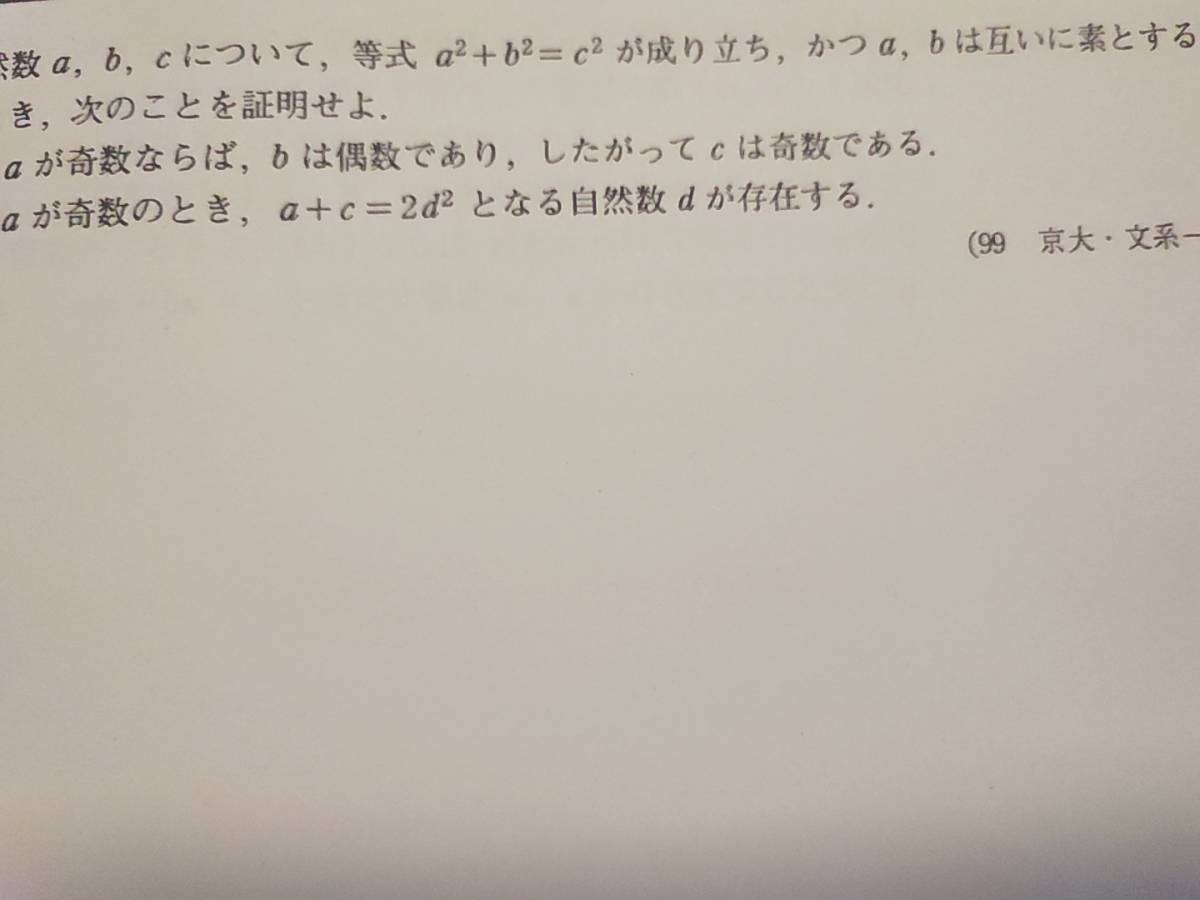 然数 a, b, c について, 等式 a²+b²=c² が成り立ち, かつ a, b は互いに素とする
き, 次のことを証明せよ.
a が奇数ならば, b は偶数であり, したがって c は奇数である.
a が奇数のとき, a+c=2d² となる自然数 d が存在する.
(99 京大・文系